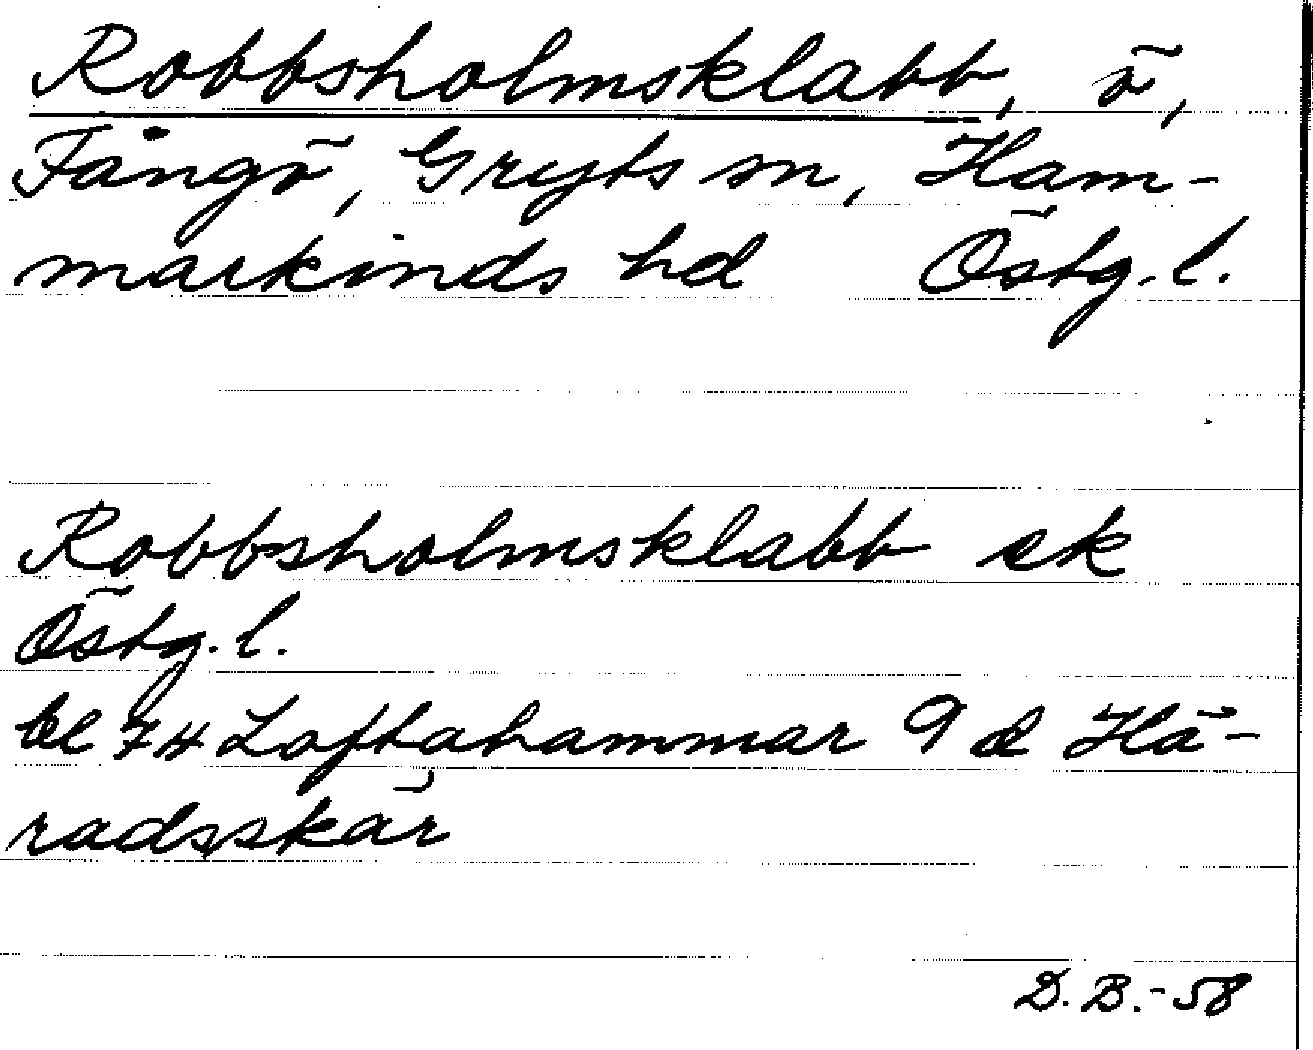 Robbsholmsklabb, ö,
Fångö, Gryts sn, Ham-
markinds hd Östg.l.
Robbsholmsklabb ek
Östg.l.
bl 74 Loftahammar 9 d Hä-
radsskär
D.B.-58